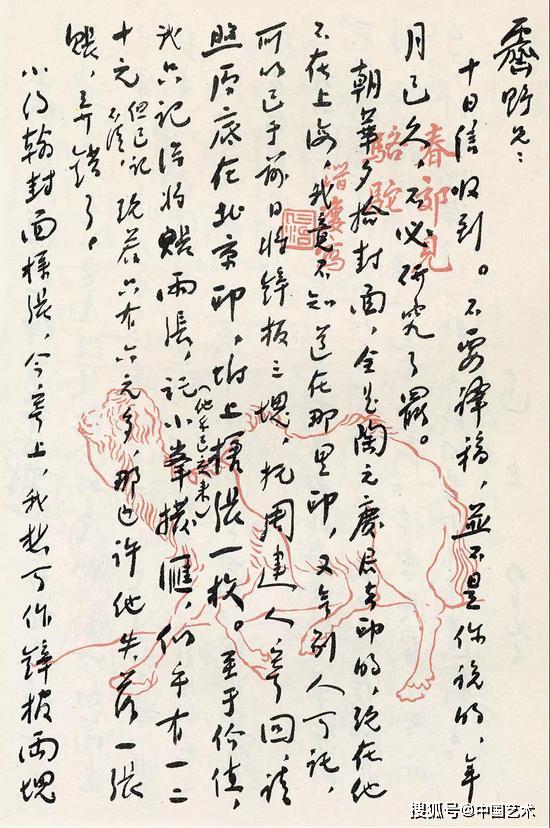 霽野兄:
十日信收到。不要譯稿,並不是你說的,年
月已久,不必研究了罷。
朝華夕拾封面,全是陶元慶君去印的,現在他
不在上海,我竟不知道在那里印,又無別人可託,
所以已于前日將鋅板三塊,托周建人寄回,請
照原底在北京印,附上樣張一枚。至于價值,
我只記得將賬兩張,託小峯撥匯,(他錢已交來)似乎有一二
十元,但已記不清,現若只有六元多,那也許他失落一張
賬,弄錯了。
小約翰封面樣張,今寄上,我想可作鋅板兩塊
春郊見
駱駝
搜狐号@中国艺术